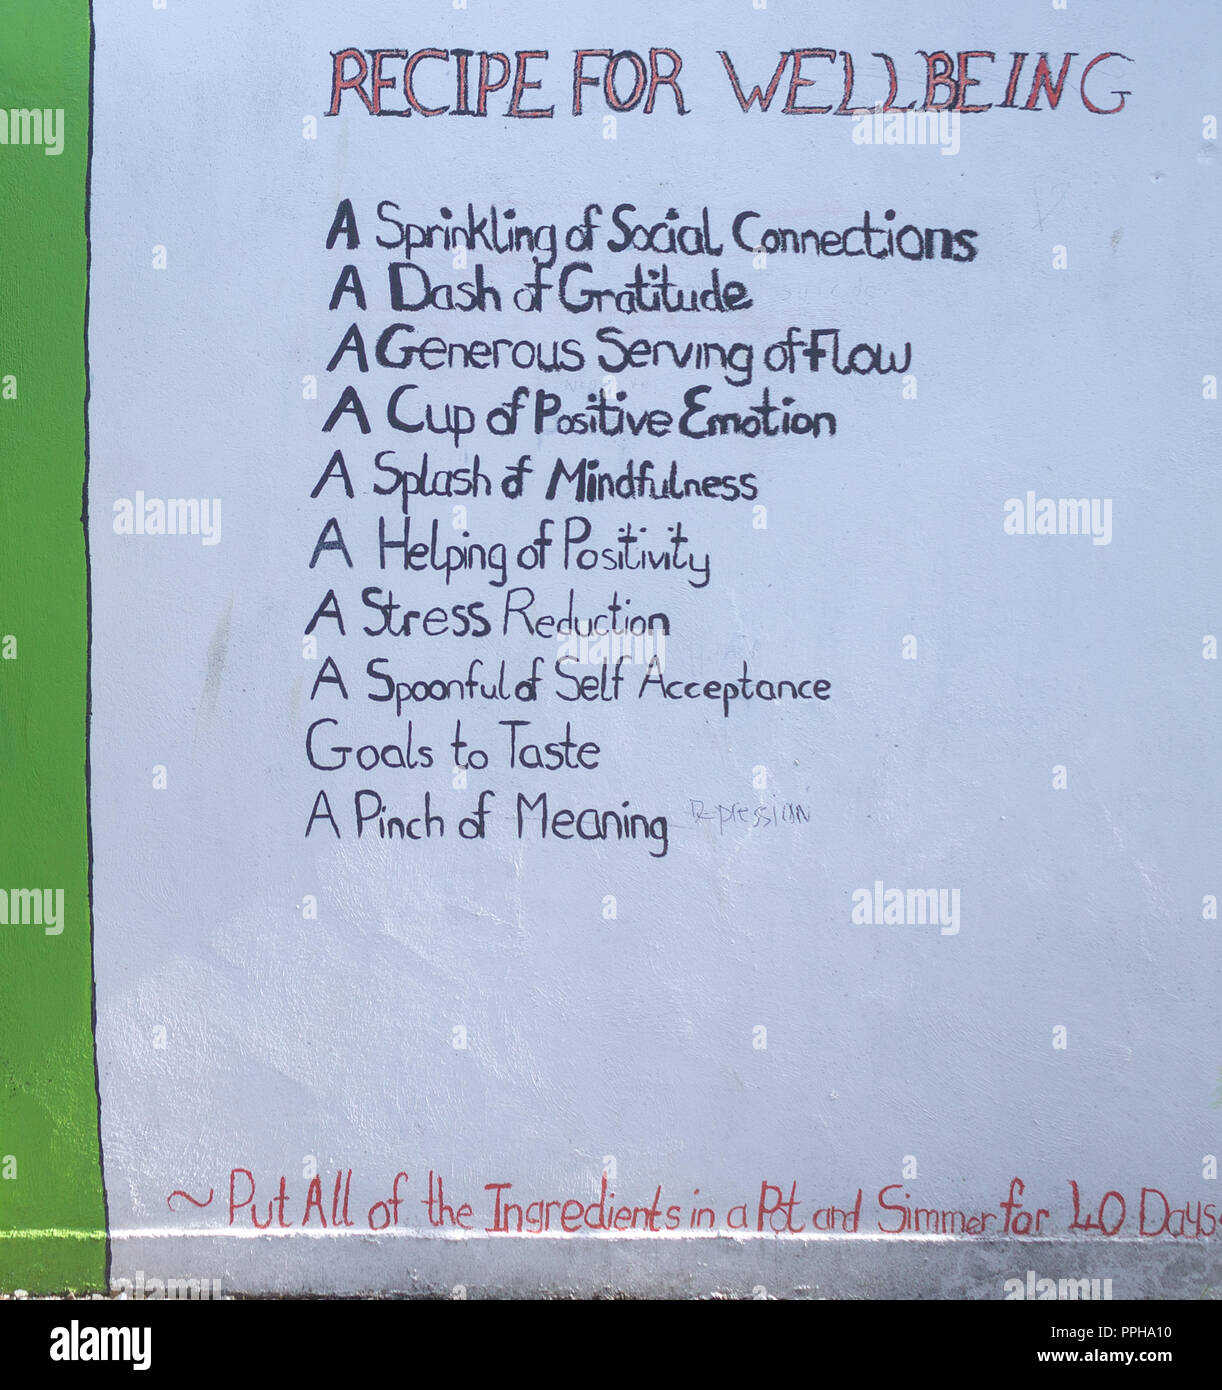 RECIPE FOR WELLBEING
A Sprinkling of Social Connections
A Dash of Gratitude
A Generous Serving of Flow
A Cup of Positive Emotion
A Splash of Mindfulness
A Helping of Positivity
A Stress Reduction
A Spoonful of Self Acceptance
Goals to Taste
A Pinch of Meaning
~ Put All of the Ingredients in a Pot and Simmer for 40 Days.
alamy
PPHA10
www.alamy.com